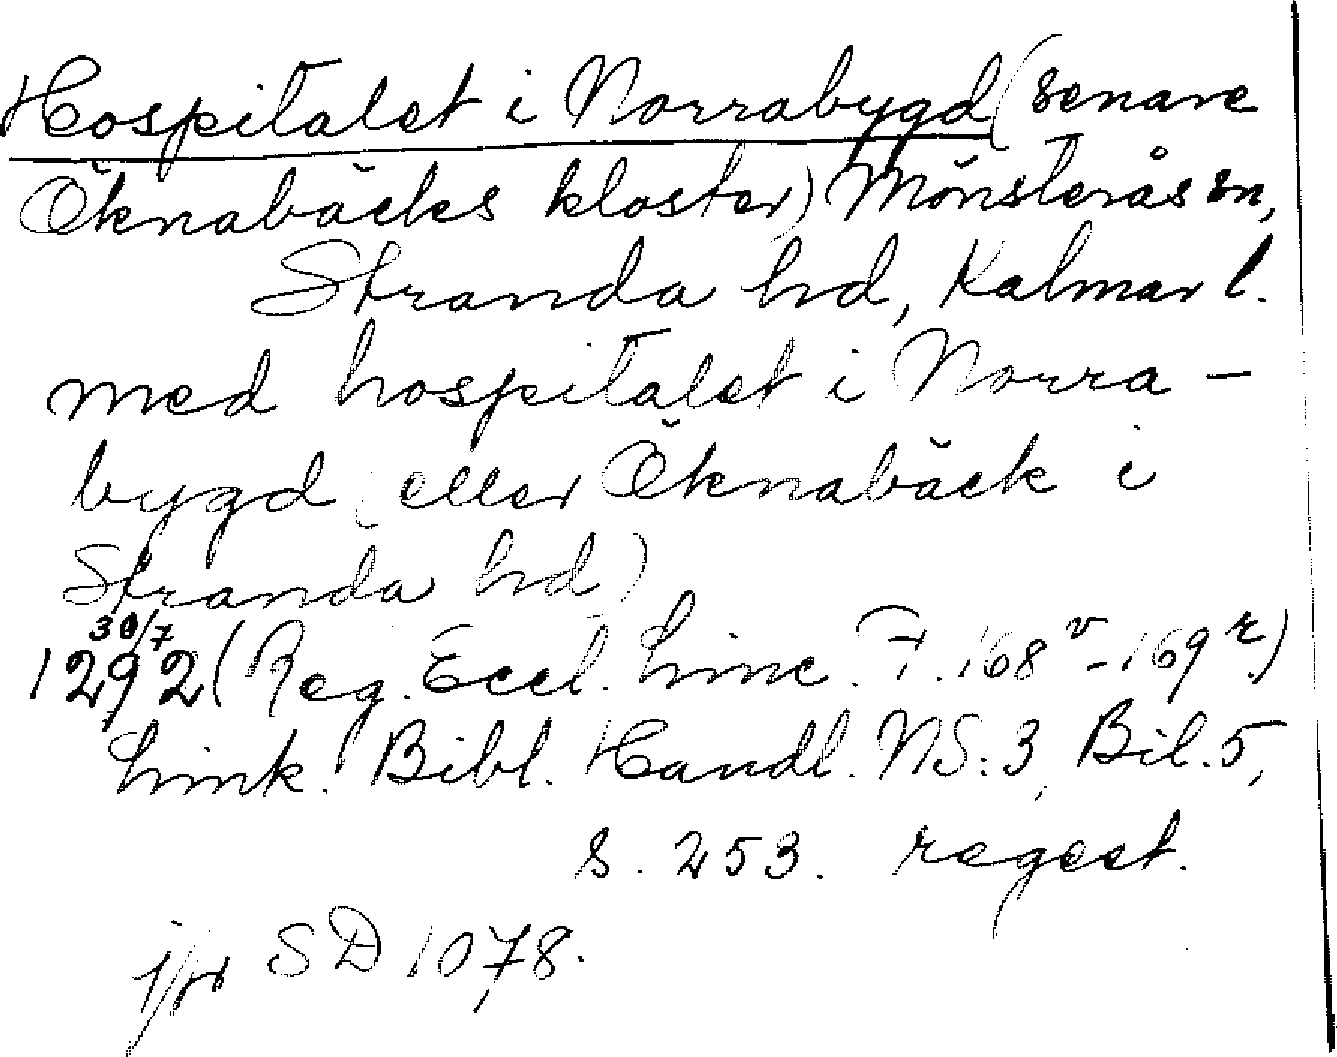 Hospitalet i Norrabygd (senare
Öknabäcks kloster) Mönsterås sn,
Stranda hd, Kalmar l.
med hospitalet i Norra-
bygd (eller Öknabäck i
Stranda hd)
30/7
1292 (Reg. Eccl. Linc. F. 168v-169r)
Link. Bibl. Handl. NS:3, Bil. 5,
s. 253. regest.
jfr SD 1078.